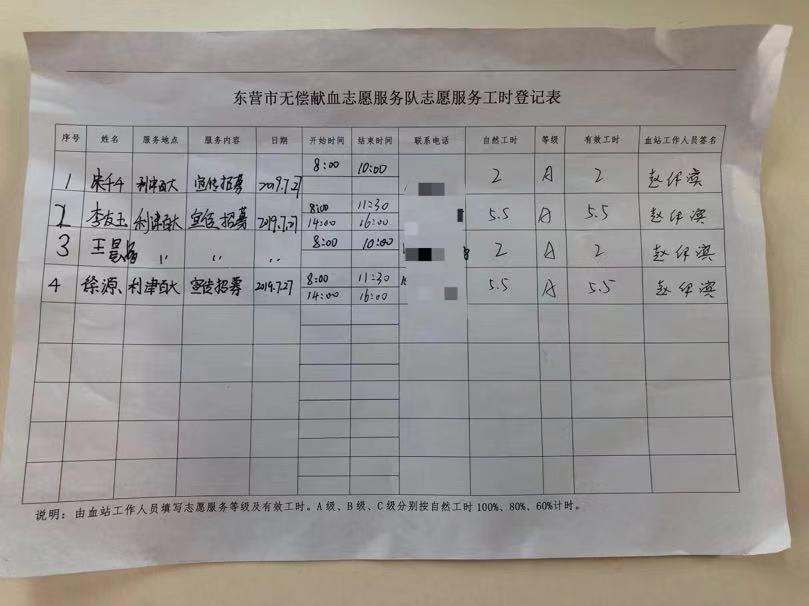 东营市无偿献血志愿服务队志愿服务工时登记表
序号 姓名 服务地点 服务内容 日期 开始时间 结束时间 联系电话 自然工时 等级 有效工时 血站工作人员签名
1 朱千千 利津百大 宣传招募 2019.7.27 8:00 10:00 2 A 2
2 李友玉 利津百大 宣传招募 2019.7.27 8:00 11:30 5.5 A 5.5
14:00 16:00
3 王 〃 〃 〃 8:00 10:00 2 A 2
4 徐源 利津百大 宣传招募 2019.7.27 8:00 11:30 5.5 A 5.5
14:00 16:00
说明：由血站工作人员填写志愿服务等级及有效工时。A级、B级、C级分别按自然工时100%、80%、60%计时。